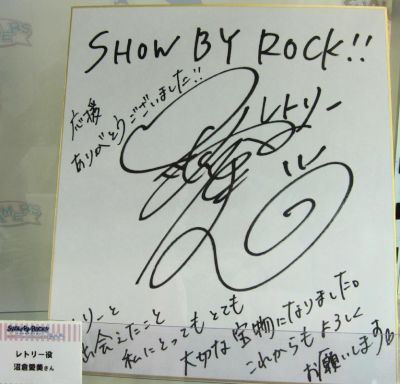 SHOW BY ROCK!!
応援
ありがとうございました!!
レトリー
レトリーと
出会えたこと
私にとってもとても
大切な宝物になりました。
これからもよろしく
お願いします
SHOW BY ROCK!!
レトリー役
沼倉愛美さん